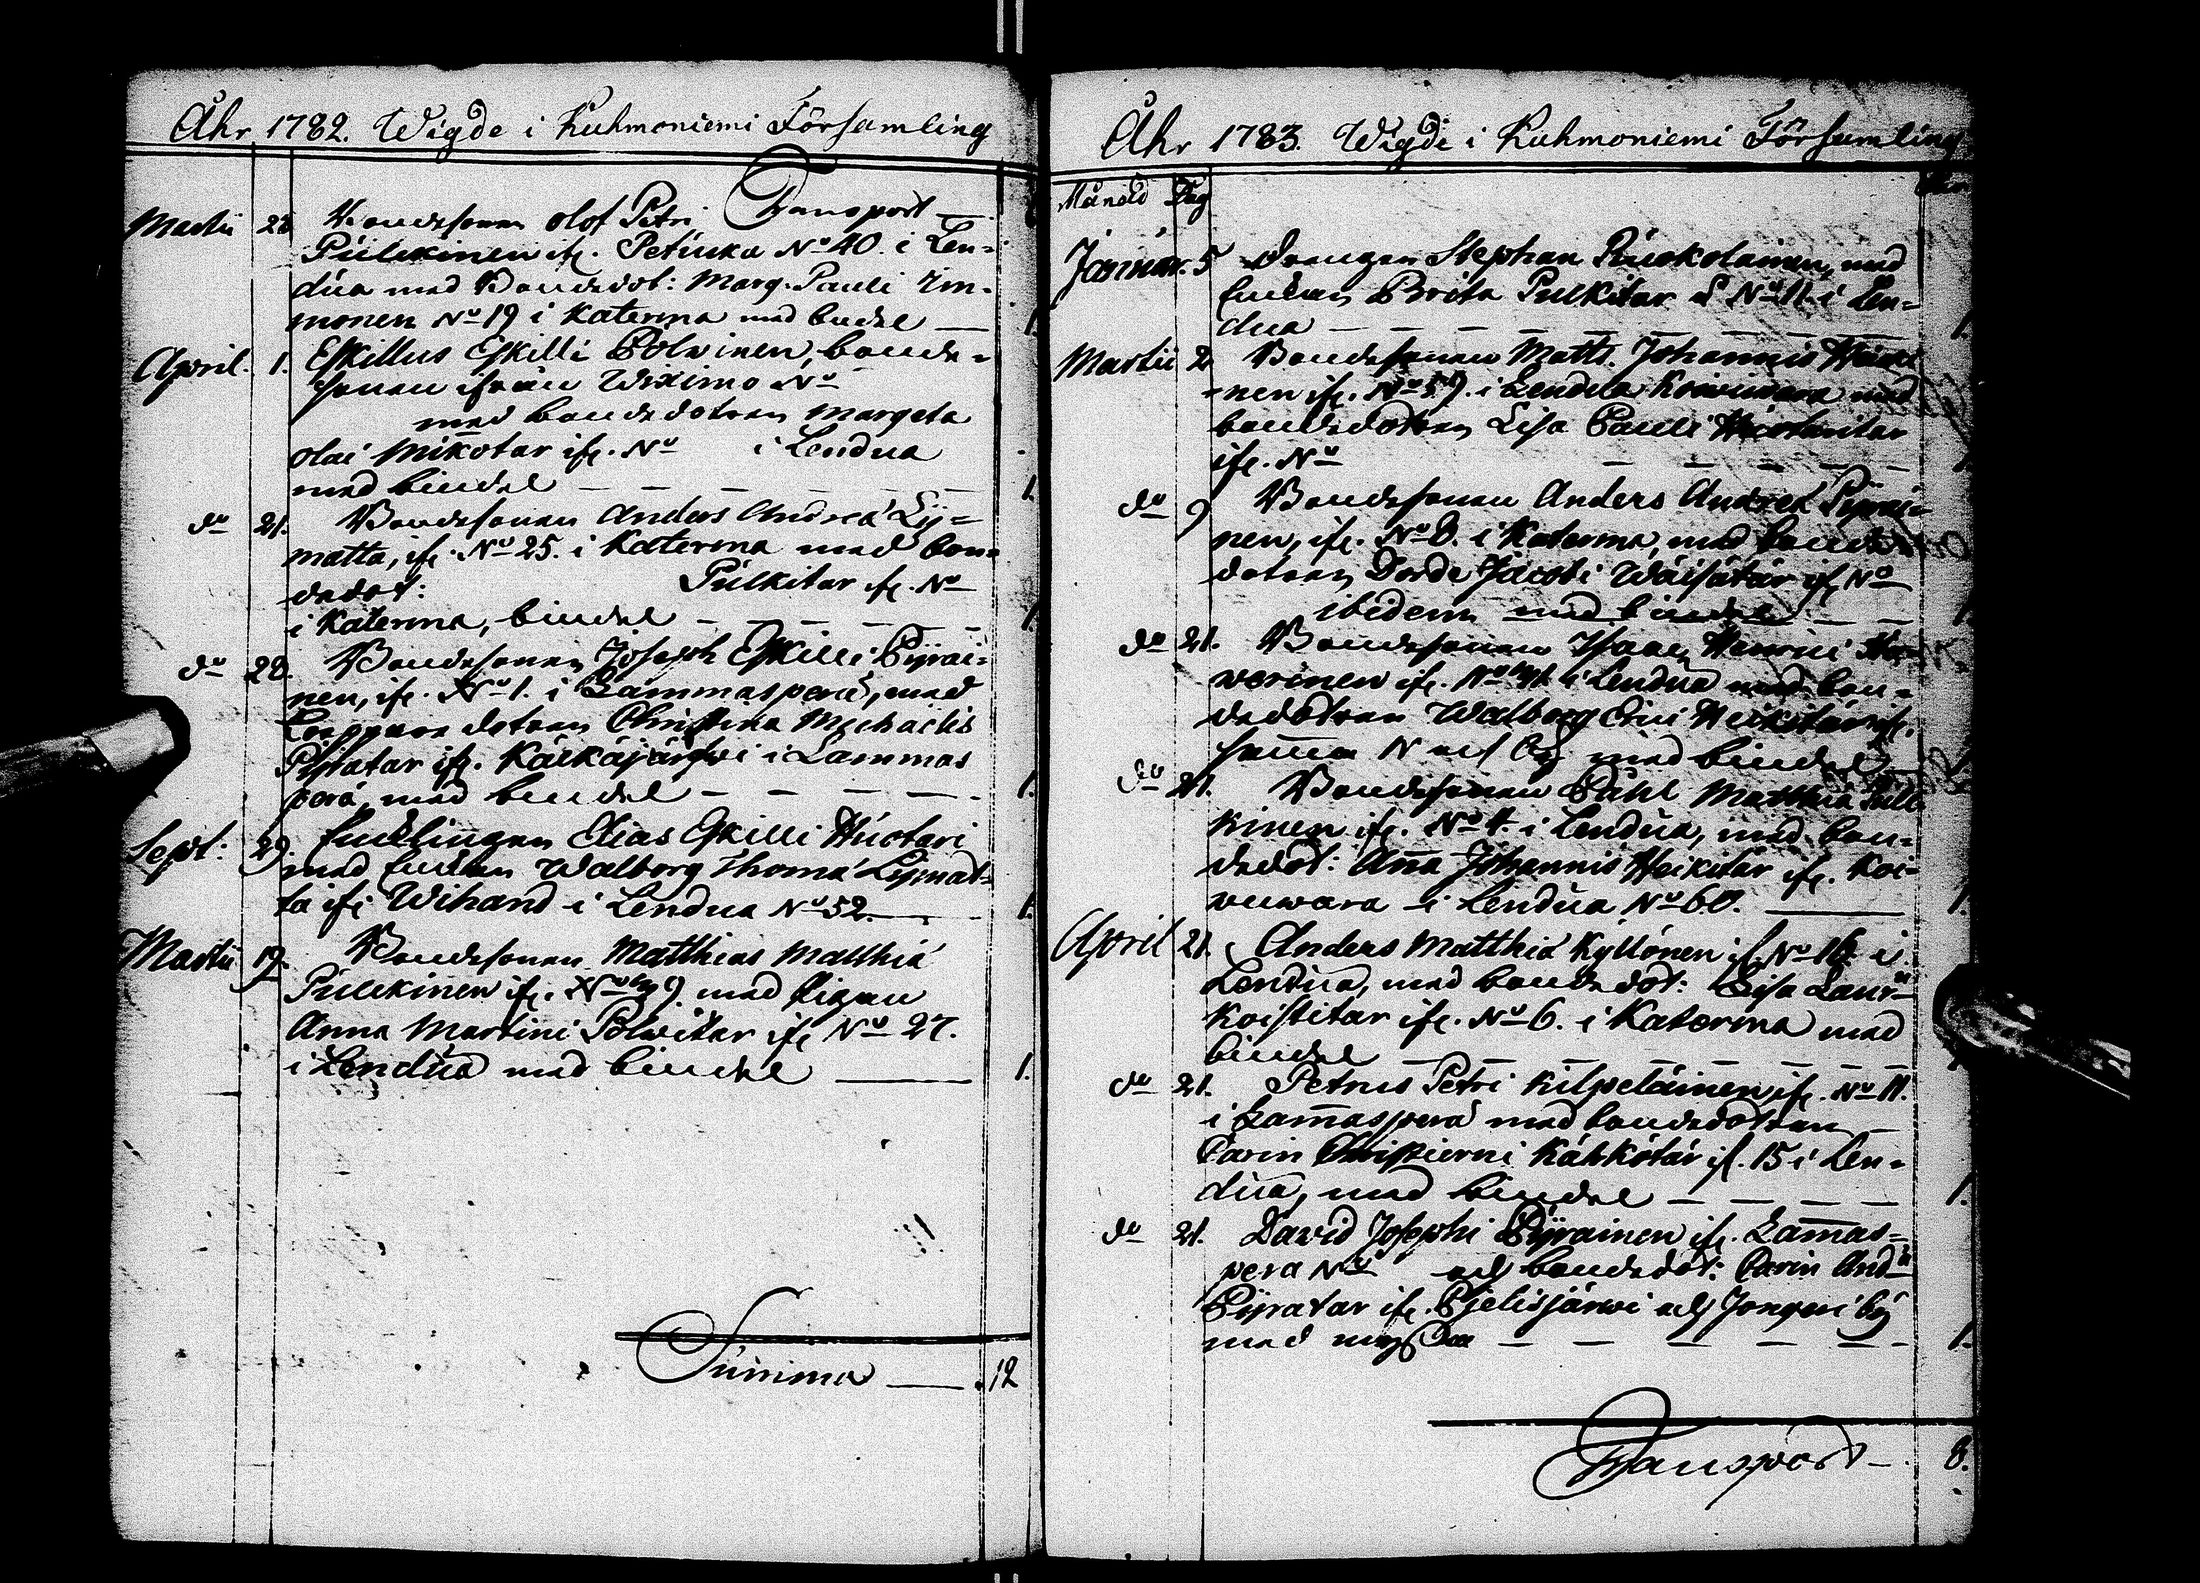 Åhr 1782. Wigde i Kuhmoniemi Församling
Transport
Martii 22 Bondesonen Olof Petri
Pulckinen ifr. Petäská No 40. i Len-
dua med Bondedot: Marg. Pauli Im-
monen No 19 i Katerma med bindel — 1.
April. 1. Eskillus Eskilli Polwinen, bonde-
sonen ifrån Wiximo No
med bondedotren Margeta
Olai Mikotar ifr. No i Lendua
med bindel — — — — — 1.
do 21. Bondesonen Anders Andreæ Lÿ-
matta, ifr. No 25. i Katerma med bon-
dedot: Pulkitar ifr. No
i Katerma, bindel — — — — 1.
do 22. Bondesonen Joseph Eskilli Pÿrai-
nen, ifr. No 1. i Lammasperä, med
Loppare dotren Christina Michaelis
Pÿratar ifr. Kälkäjärfwi i Lammas
perä, med bindel — — — — 1.
Sept: 29 Enklingen Elias Eskilli Huotari
med Enkan Walborg Thomæ Lÿmat-
ta ifr. Wihand i Lendua No 52. — 1.
Martii 19. Bondesonen Matthias Matthiæ
Pulckinen ifr. No 49. med Pigan
Anna Martini Polwitar ifr. No 27.
i Lendua med bindel — 1.
Summa — 12
Åhr 1783. Wigde i Kuhmoniemi Församling
Månad Dag
Januar. 5 Drengen Stephan Ruokolainen, med
Enkan Brita Pulkitar No 11. i Len-
dua — — — — — — 1.
Martii 2 Bondesonen Matts Johannis
-nen ifr. No 59. i Lendua Koiwuwara med
bondedotren Lisa Pauli
ifr. No — — — — — 1.
do 9 Bondesonen Anders Andreæ Pÿrai-
nen, ifr. No 8. i Katerma, med bonde
dotren Dorde Jacobi Wäisätär ifr. No
ibidem med bindel — — 1.
do 21. Bondesonen Isaac Henrici
werinen ifr. No i Lendua med bon-
dedotren Walborg Erici Heikitär ifr.
samma N och by med bindel
do 21. Bondesonen Påhl Matthiæ Pull
kinen ifr. No 4. i Lendua, med bon-
dedot: Anna Johannis Heikitär ifr. Koi-
wuwara i Lendua No 60. — 1.
April 21. Anders Matthiæ Kyllönen ifr. No 16. i
Lendua, med bondedot: Lisa Laur:
Koistitar ifr. No 6. i Katerma med
bindel — — — — —
do 21. Petrus Petri Kilpeläinen ifr. No 11.
i Lam̄asperä med bondedotren
Carin Christierni Kähkötär ifr. 15 i Len-
dua, med bindel — — — — 1.
do 21. David Josephi Pÿrainen ifr. Lam̄as-
pera No och bondedot: Carin And:
Pÿratar ifr. Pjelisjärwi och Jongeri bÿ
med — — — — — 1.
Transport — 8.